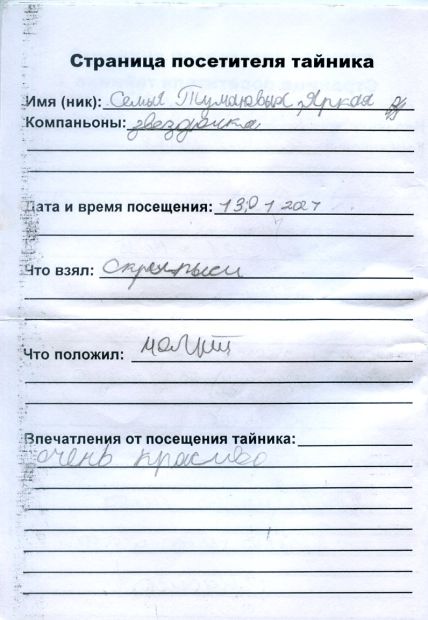 Страница посетителя тайника
Имя (ник): Семья Тумановых, Яркая
Компаньоны: звездочка
Дата и время посещения: 13.01 2021
Что взял:
Что положил:
Впечатления от посещения тайника:
очень красиво